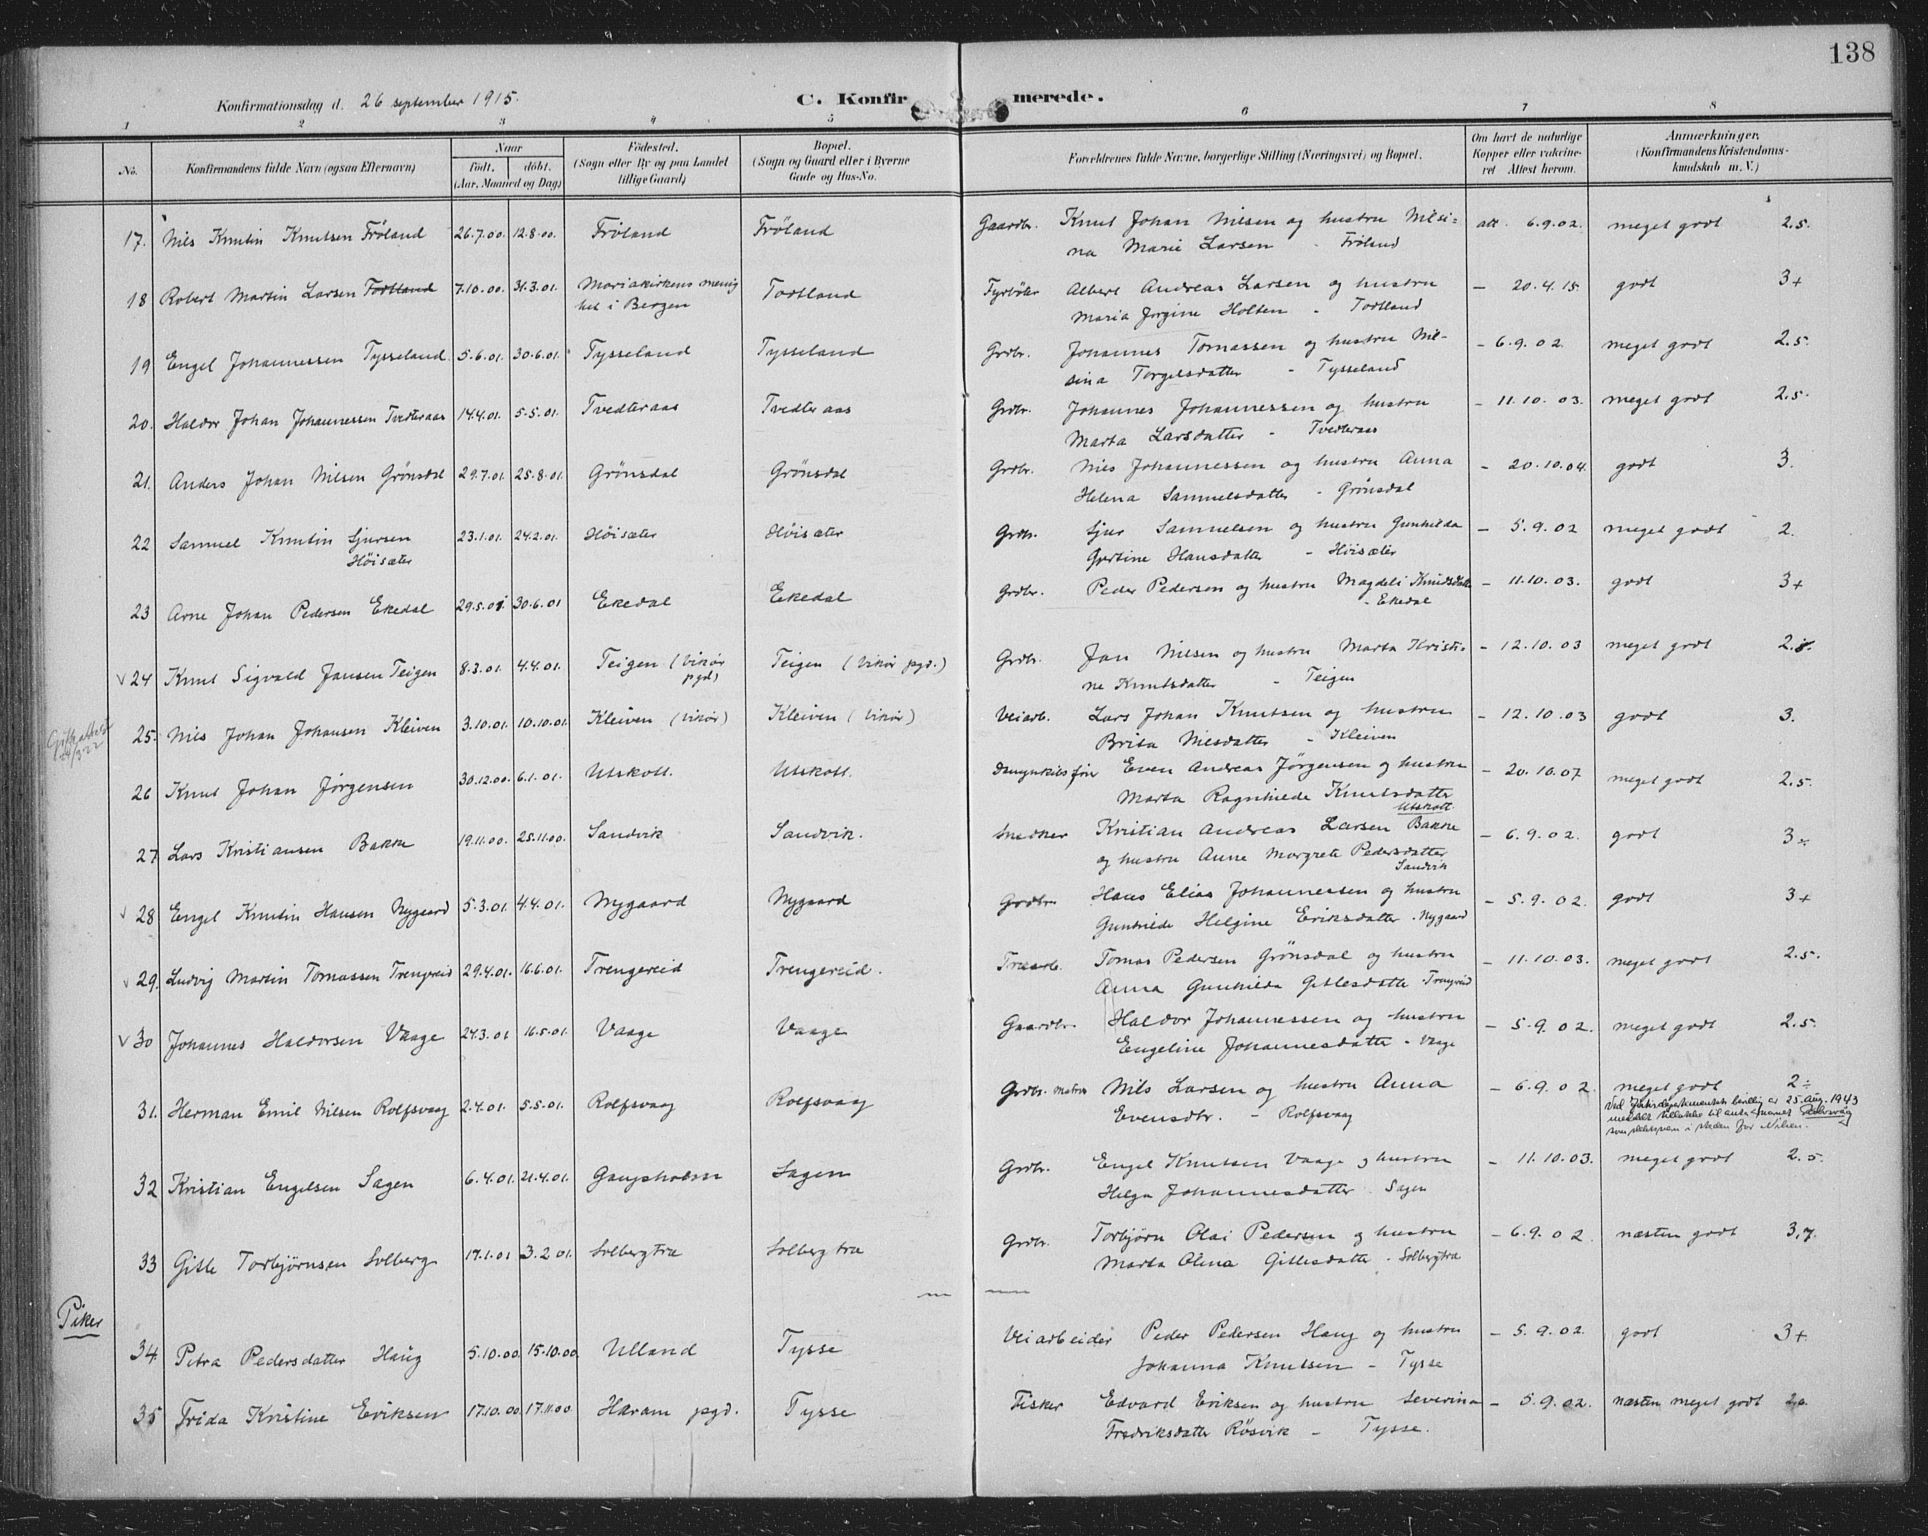 138
Konfirmationsdag d. 26 september 1915.
C. Konfirmerede.
1 2 3 4 5 6 7 8
No.
Konfirmandens fulde Navn (ogsaa Efternavn)
Naar
født. døbt.
(Aar, Maaned og Dag)
Fødested.
(Sogn eller By og paa Landet
tillige Gaard)
Bopæl.
(Sogn og Gaard eller i Byerne
Gade og Hus-No.
Forældrenes fulde Navne, borgerlige Stilling (Næringsvei) og Bopæl.
Om havt de naturlige
Kopper eller vakcine-
ret Attest herom.
Anmærkninger.
(Konfirmandens Kristendoms-
kundskab m. V.)
17. Nils Knutin Knutsen Frøland 26.7.00. 12.8.00. Frøland Frøland Gaardbr. Knut Johan Nilsen og hustru Nilsi= att. 6.9.02. meget godt 2.5.
na Marie Larsen - Frøland
18 Robert Martin Larsen Tortland 7.10.00. 31.3.01. Mariakirkens menig Tortland Fyrbøter Albert Andreas Larsen og hustru - 20.4.15. godt 3+
het i Bergen Maria Jorgine Holten - Tortland
19 Engel Johannessen Tysseland 5.6.01. 30.6.01. Tysseland Tysseland Grdbr. Johannes Tomassen og hustru Nil- - 6.9.02. meget godt 2.5.
sina Torgelsdatter - Tysseland
20. Haldor Johan Johannessen Tvedteraas 14.4.01. 5.5.01. Tvedteraas Tvedteraas Grdbr. Johannes Johannessen og hustru - 11.10.03. meget godt 2.5.
Marta Larsdatter - Tvedteraas
21. Anders Johan Nilsen Grønsdal 29.7.01. 25.8.01. Grønsdal Grønsdal Grdbr. Nils Johannessen og hustru Anna - 20.10.04. godt 3.
Helena Samuelsdatter - Grønsdal
22 Samuel Knutin Sjursen 23.1.01. 24.2.01. Høisæter Høisæter Grdbr. Sjur Samuelsen og hustru Gunhilda - 5.9.02 meget godt 2.
Høisæter Gjertine Hansdatter - Høisæter
23 Arne Johan Pedersen Ekedal 29.5.01 30.6.01 Ekedal Ekedal Grdbr. Peder Pedersen og hustru Magdeli Knudsdatter - 11.10.03. godt 3+
- Ekedal
24 Knut Sigvald Jansen Teigen 8.3.01. 4.4.01. Teigen (Vikør Teigen (Vikør pgd.) Grdbr. Jan Nilsen og hustru Marta Kristi= - 12.10.03 meget godt 2.5.
pgd) ne Knutsdatter - Teigen
25. Nils Johan Johansen Kleiven 3.10.01. 10.10.01. Kleiven (Vikør) Kleiven (Vikør) Veiarb. Lars Johan Knutsen og hustru - 12.10.03 godt 3.
Brita Nilsdatter - Kleiven
26 Knut Johan Jørgensen 30.12.00. 6.1.01. Utskott. Utskott. Even Andreas Jørgensen og hustru - 20.10.07. meget godt 2.5.
Marta Ragnhilde Knutsdatter
Utskott
27 Lars Kristiansen Bakke 19.11.00. 25.11.00. Sandvik Sandvik. Snedker Kristian Andreas Larsen Bakke - 6.9.02. godt 3
og hustru Anne Margrete Pedersdatter
Sandvik
28 Engel Knutin Hansen Nygaard 5.3.01. 4.4.01. Nygaard Nygaard Grdbr. Hans Elias Johannessen og hustru - 5.9.02. godt 3+
Gunhilde Helgine Eriksdatter - Nygaard
29. Ludvig Martin Tomassen Trengereid 29.4.01. 16.6.01. Trengereid Trengereid. Træarb. Tomas Pedersen Grønsdal og hustru - 11.10.03. meget godt 2.5.
Anna Gunhilda Gitlesdatter - Trengereid
30 Johannes Haldorsen Vaage 24.3.01 16.5.01. Vaage Vaage Gaardbr. Haldor Johannessen og hustru - 5.9.02. meget godt 2.5.
Engeline Johannesdatter - Vaage
31. Herman Emil Nilsen Rolfsvaag 2.4.01. 5.5.01. Rolfsvaag Rolfsvaag Grdbr. matros Nils Larsen og hustru Anna - 6.9.02. meget godt 2÷
Evensdtr. - Rolfsvaag
Ved Justisdepartementets bevillg av 25. Aug. 1943
meddelt tillatelse til anta navnet Rolvsvåg
som slektsnavn i steden for Nilsen.
32 Kristian Engelsen Sagen 6.4.01. 21.4.01. Gaupholm Sagen Grdbr. Engel Knutsen Vaage og hustru - 11.10.03. meget godt 2.5
Helga Johannesdatter - Sagen
33 Gitle Torbjørnsen Solberg 17.1.01 3.2.01. Solbergtræ Solbergtræ Grdbr. Torbjørn Olai Pedersen og hustru - 6.9.02. næsten godt 3,7.
Marta Olina Gitlesdatter - Solbergtræ
Piker
34 Petra Pedersdatter Haug 5.10.00. 15.10.00. Ulland Tysse Veiarbeider Peder Pedersen Haug og hustru - 5.9.02. godt 3+
Johanna Knutsen - Tysse
35 Frida Kristine Eriksen 17.10.00. 17.11.00. Haram pgd. Tysse Fisker Edvard Eriksen og hustru Severina - 5.9.02. næsten meget godt
Fredriksdatter Røsvik - Tysse.